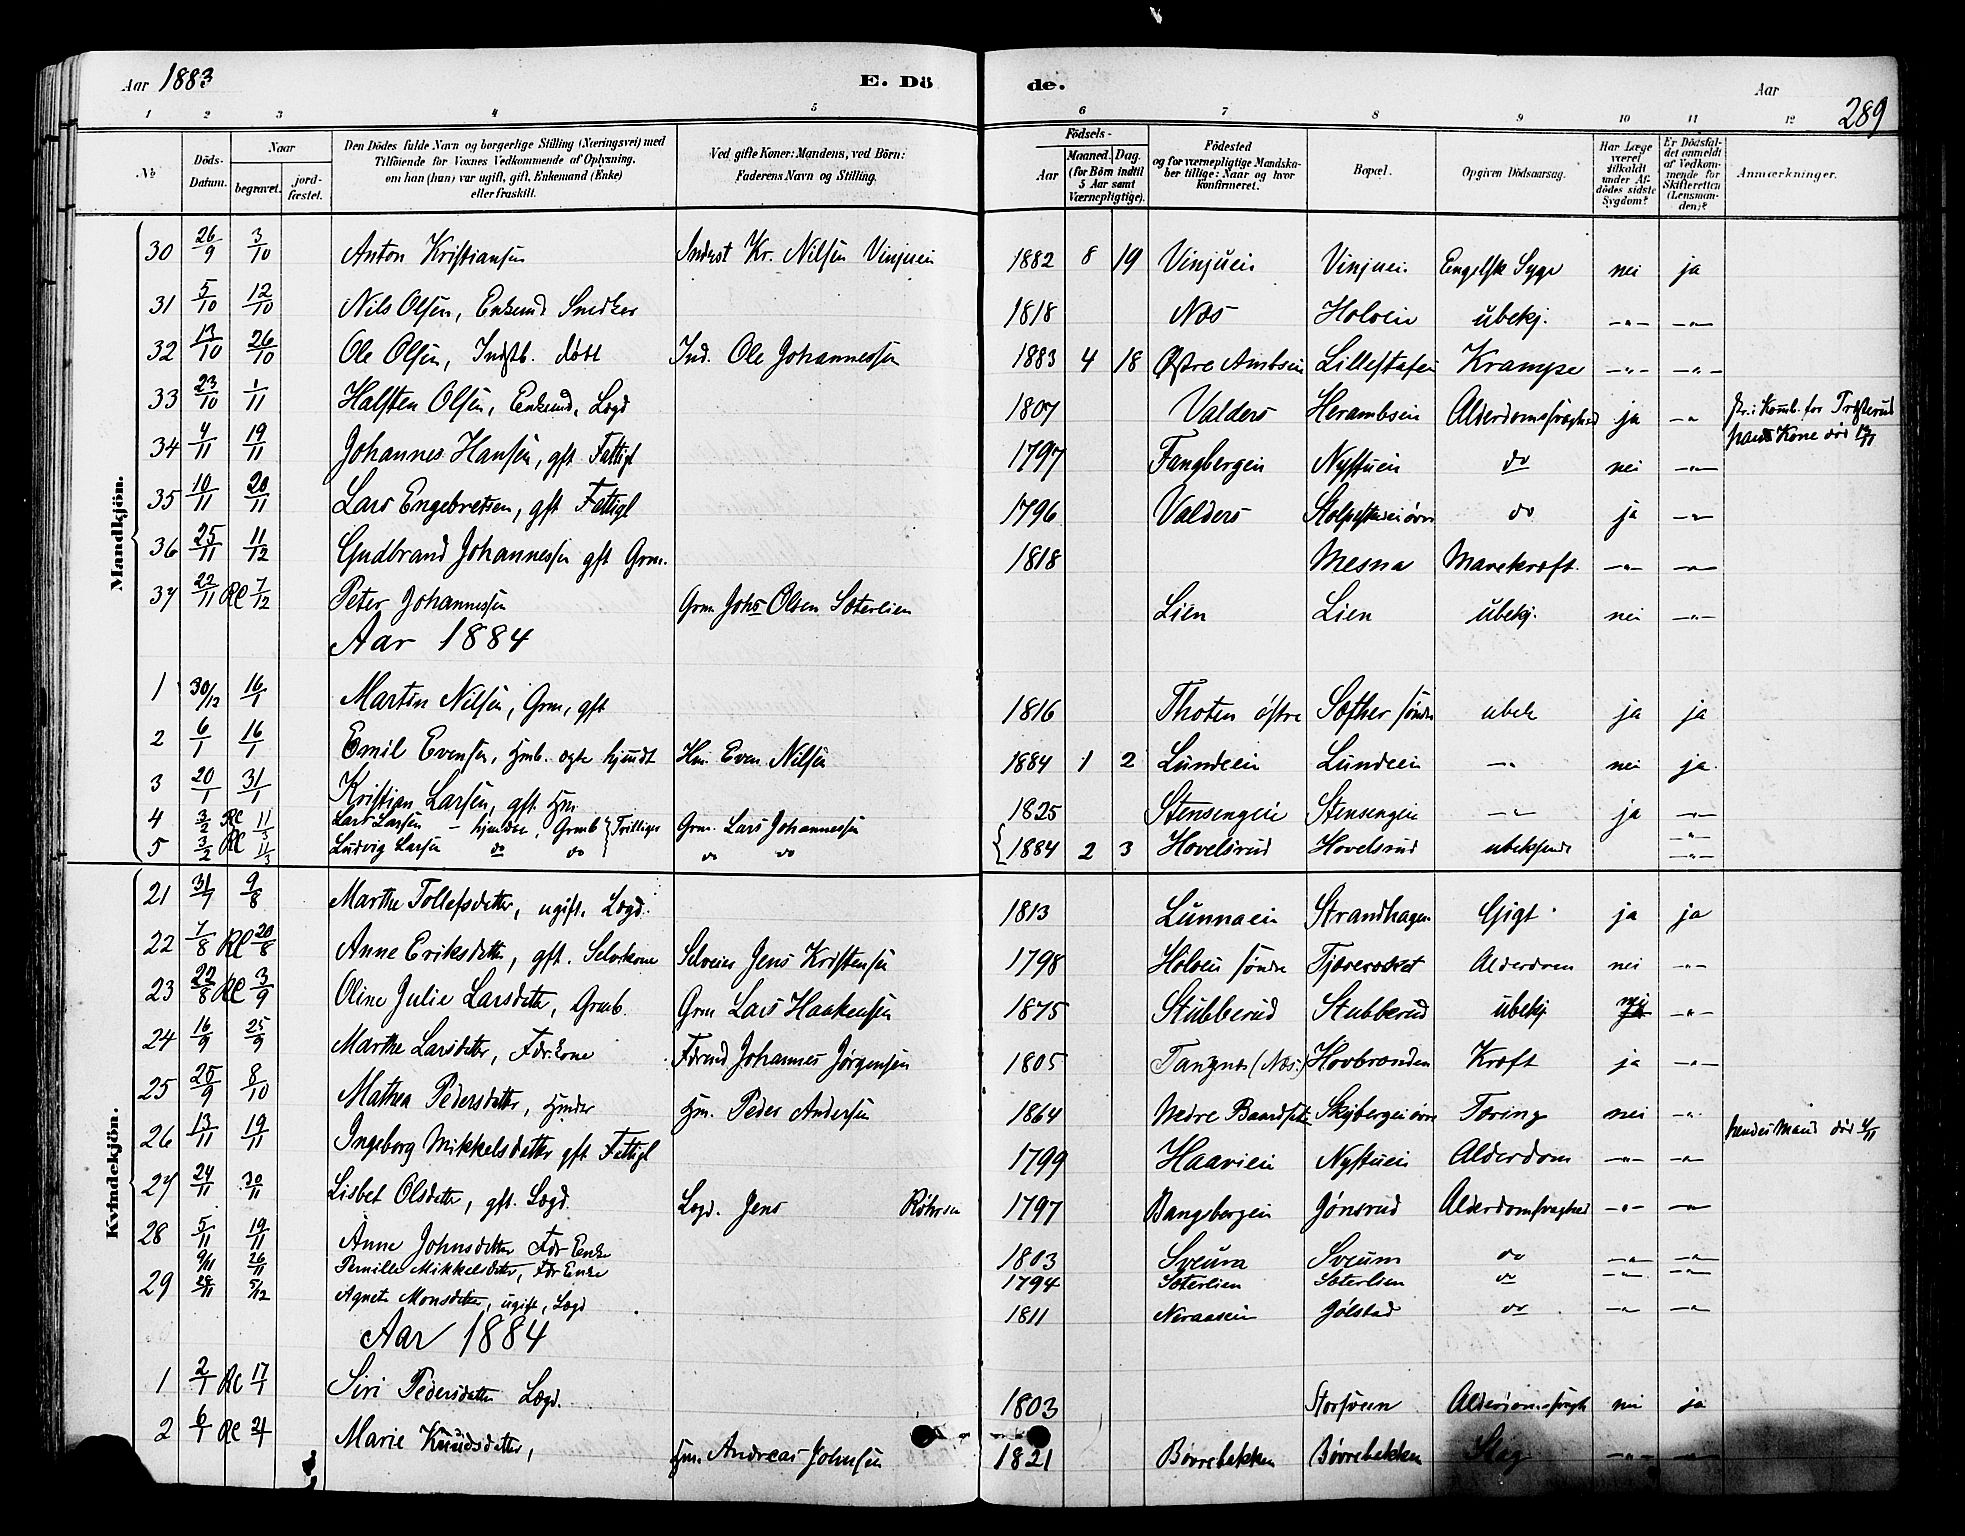 Aar 1883 E. Dö de. Aar 289
1 2 3 4 5 6 7 8 9 10 11 12
No Döds-Datum. Naar begravet. jord-fæstet. Den Dödes fulde Navn og borgerlige Stilling (Næringsvei) med Tilföiende for Voxnes Vedkommende af Oplysning, om han (hun) var ugift, gift, Enkemand (Enke) eller fraskilt. Ved gifte Koner: Mandens, ved Börn: Faderens Navn og Stilling. Födsels- Aar Maaned. Dag. (for Börn indtil 5 Aar samt Værnepligtige). Födested og for værnepligtige Mandskaber tillige: Naar og hvor konfirmeret. Bopæl. Opgiven Dödsaarsag. Har Læge været tilkaldt under Afdödes sidste Sygdom? Er Dödsfaldet anmeldt af Vedkommende for Skifteretten (Lensmanden)? Anmærkninger.
Mandkjön.
30 26/9 3/10 Anton Kristiansen Inderst Kr. Nilsen Vinjueie 1882 8 19 Vinjueie Vinjuei Engelsk Syge nei ja
31 5/10 12/10 Nils Olsen, Enkemd Snedker 1818 Næs Holveie ubekj. -"- -"-
32 13/10 26/10 Ole Olsen, Indstb. døbt Ind. Ole Johannessen 1883 4 18 Østre Ambseie Krampe -"- -"-
33 23/10 1/11 Halsten Olsen, Enkemd, Lægd 1807 Valders Herambseie Alderdomssvaghed ja -"-
34 4/11 19/11 Johannes Hansen, gft Fattigl 1797 Fangbergeie Nystueie do nei -"- hans Kone død 13/11
35 10/11 20/11 Lars Engebretsen, gft Fattigl 1796 Valders do ja -"-
36 25/11 11/12 Gudbrand Johannessen gft Grm. 1818 Mesna Mavekræft. -"- -"-
37 22/11 Rl 7/12 Peter Johannessen Grm. Johs Olsen Sæterlien Lien Lien ubekj. nei -"-
Aar 1884
1 30/12 16/1 Martin Nilsen, Grm, gft 1816 Thoten østre ubek ja ja
2 6/1 16/1 Emil Evensen, Hmb. ægte hjemdt Hm. Even Nilsen 1884 1 2 Lundeeie Lundeeie -"- nei ja
3 20/1 31/1 Kristian Larsen, gft. Hm 1825 Stensengeie Stensengeie -"- ja -"-
4 3/2 Rl 11/3 Lars Larsen - hjemdøbt, Grmb } Trillinger Grm. Lars Johannessen
5 3/2 Rl 11/3 Ludvig Larsen do do do do 1884 2 3 Hovelsrud Hovelsrud ubekjendt -"-
Kvindekjön.
21 31/7 9/8 Marthe Tollefsdatter, ugift. Lægd. 1813 Lunnaeie Strandhagen Gigt. ja ja
22 7/8 Rl 20/8 Anne Eriksdatter, gft. Selveier Jens Kristensen 1798 Holveie søndre Alderdom nei -"-
23 22/8 Rl 3/9 Oline Julie Larsdatter, Grmb. Grm Lars Haakensen 1875 Stubberud Stubberud ubekj nei -"-
24 16/9 25/9 Marthe Larsdatter, Fdr.kone Førmd Johannes Jørgensen 1805 Tangnes (Næs.) Hovbrænden Kræft ja -"-
25 25/9 8/10 Mathea Pedersdatter, Hm. Peder Andersen 1864 Nedre Tæring nei -"-
26 13/11 19/11 Ingeborg Mikkelsdatter gft Fattigl 1799 Haavieie Nystueie Alderdom -"- -"- hendes Mand død 4/11
27 24/11 30/11 Lisbet Olsdatter, gft. Lægd Lægd. Jens 1797 Bangsbergeie Jønsrud Alderdomssvaghed -"- -"-
28 5/11 19/11 Anne Johnsdatter Fdr Enke 1803 Sveum Sveum do -"- -"-
9/11 26/11 Pernille Mikkelsdatter, Fdr Enke 1794 Sæterlien Sæterlien do -"- -"-
29 28/11 5/12 Agnete Monsdatter, ugift, Lægd 1811 Neraaseie Gjølstad do -"- -"-
Aar 1884
1 2/1 Rl 17/1 Siri Pedersdatter Lægd. 1803 nei ja
2 6/1 Rl 21/1 Marie Knudsdatter, Hm. Andreas Johnsen 1821 Børrebakken Børrebakken Slag -"- -"-